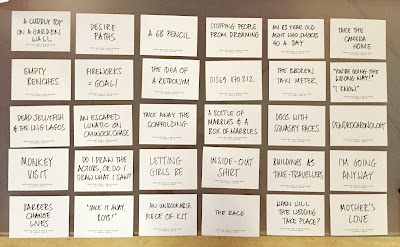 A CUDDLY TOY
ON A GARDEN
WALL
DESIRE
PATHS
A 6B PENCIL
STOPPING PEOPLE
FROM DROWNING
AN 83 YEAR OLD
AUNT WHO SMOKES
40 A DAY
TAKE THE
CAMERA
HOME
EMPTY
BENCHES
FIREWORKS
= GOAL!
THE IDEA OF
A RETRONYM
01369 870212
THE BROKEN
TAXI METER
"YOU'RE GOING THE
WRONG WAY!"
"I KNOW"
DEAD JELLYFISH
& THE LNG LAGOS
AN ESCAPED
LUNATIC ON
CANNOCK CHASE
TAKE AWAY THE
SCAFFOLDING
A BOTTLE OF
MARBLES & A
BOX OF MARBLES
DOGS WITH
SQUASHY FACES
DENDROCHRONOLOGY
MONKEY
VISIT
DO I DRAW THE
ACTORS, OR DO I
DRAW WHAT I SAW?
LETTING
GIRLS BE
INSIDE-OUT
SHIRT
BUILDINGS AS
TIME-TRAVELLERS
I'M GOING
ANYWAY
BARBERS
CHANGE
LIVES
"TAKE IT AWAY,
BOYS!"
AN UNBOOKABLE
PIECE OF KIT
THE RACE
WHEN WILL
THE WEDDING
TAKE PLACE?
MOTHER'S
LOVE